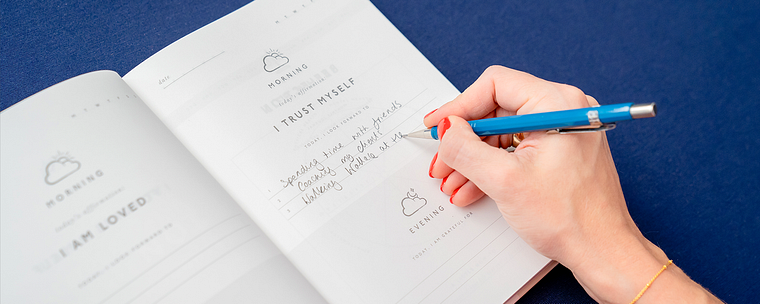 MORNING
today's affirmation:
I AM LOVED
TODAY, I LOOK FORWARD TO
date
MORNING
today's affirmation:
I TRUST MYSELF
TODAY, I LOOK FORWARD TO
• Spending time with friends
• Coaching my clients
• Walking Wallace at the
EVENING
TODAY, I AM GRATEFUL FOR